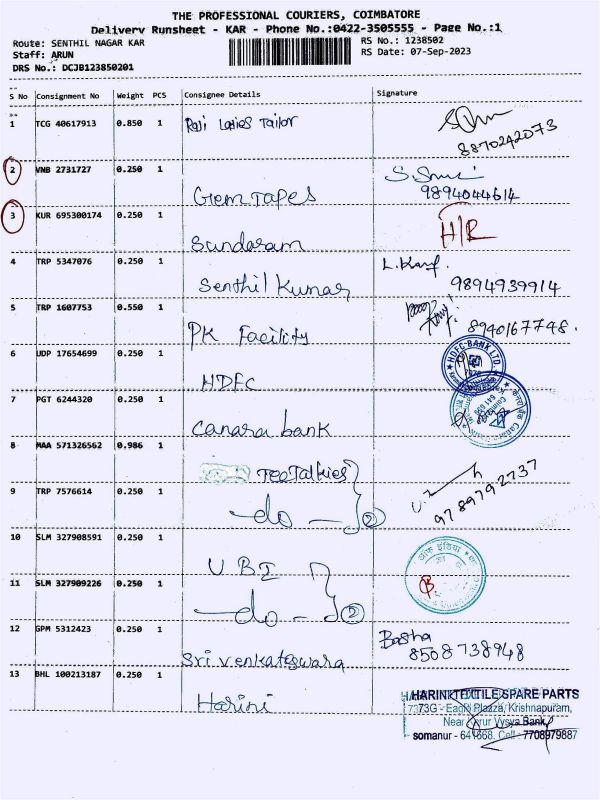 THE PROFESSIONAL COURIERS, COIMBATORE
Delivery Runsheet - KAR - Phone No.:0422-3505555 - Page No.:1
Route: SENTHIL NAGAR KAR
RS No.: 1238502
Staff: ARUN
RS Date: 07-Sep-2023
DRS No.: DCJB123850201
S No Consignment No Weight PCS Consignee Details Signature
1 TCG 40617913 0.850 1 Raji Ladies Tailor
8870242073
2 VNB 2731727 0.250 1
Gem Tapes 9894044614
3 KUR 695300174 0.250 1 H/R
Sundaram
4 TRP 5347076 0.250 1
Senthil Kumar 9894939914
5 TRP 1607753 0.550 1
PK Facility 8940167748.
6 UDP 17654699 0.250 1 HDFC BANK LTD.
HDFC
7 PGT 6244320 0.250 1
Canara bank
8 MAA 571326562 0.986 1
TeeTalkies
9 TRP 7576614 0.250 1 9789792737
-do- 2
10 SLM 327908591 0.250 1
UBI
11 SLM 327909226 0.250 1
-do- 2
12 GPM 5312423 0.250 1 Basha
Sri Venkateswara 8508738948
13 BHL 100213187 0.250 1
Harini
HARINI TEXTILE SPARE PARTS
Plazza, Krishnapuram,
Near Vysya Bank,
somanur - 641668. Cell: 7708979887